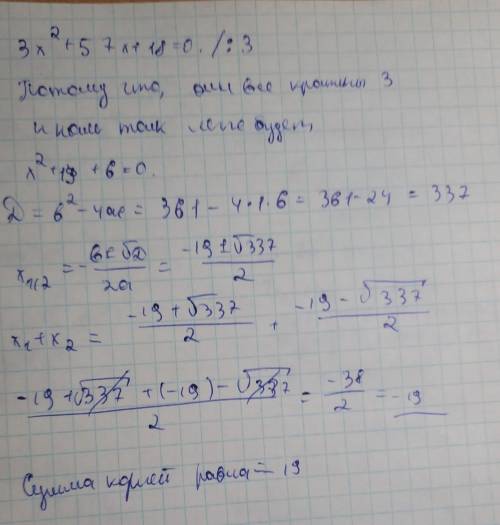 3x² + 57x + 18 = 0. /: 3
Потому что, они все кратны 3
и нам так легче будет,
x² + 19 + 6 = 0.
D = b² - 4ac = 361 - 4·1·6 = 361 - 24 = 337
x₁,₂ = -b±√D / 2a = -19 ± √337 / 2
x₁ + x₂ = -19 + √337 / 2 + -19 - √337 / 2
-19 + √337 + (-19) - √337 / 2 = -38 / 2 = -19
Сумма корней равна = 19